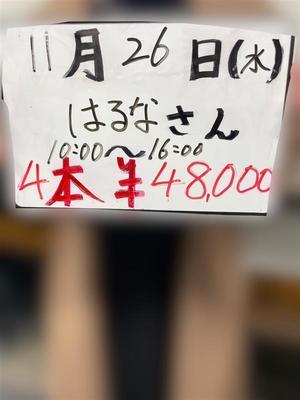 11月26日(水)
はるなさん
10:00〜16:00
4本¥48,000